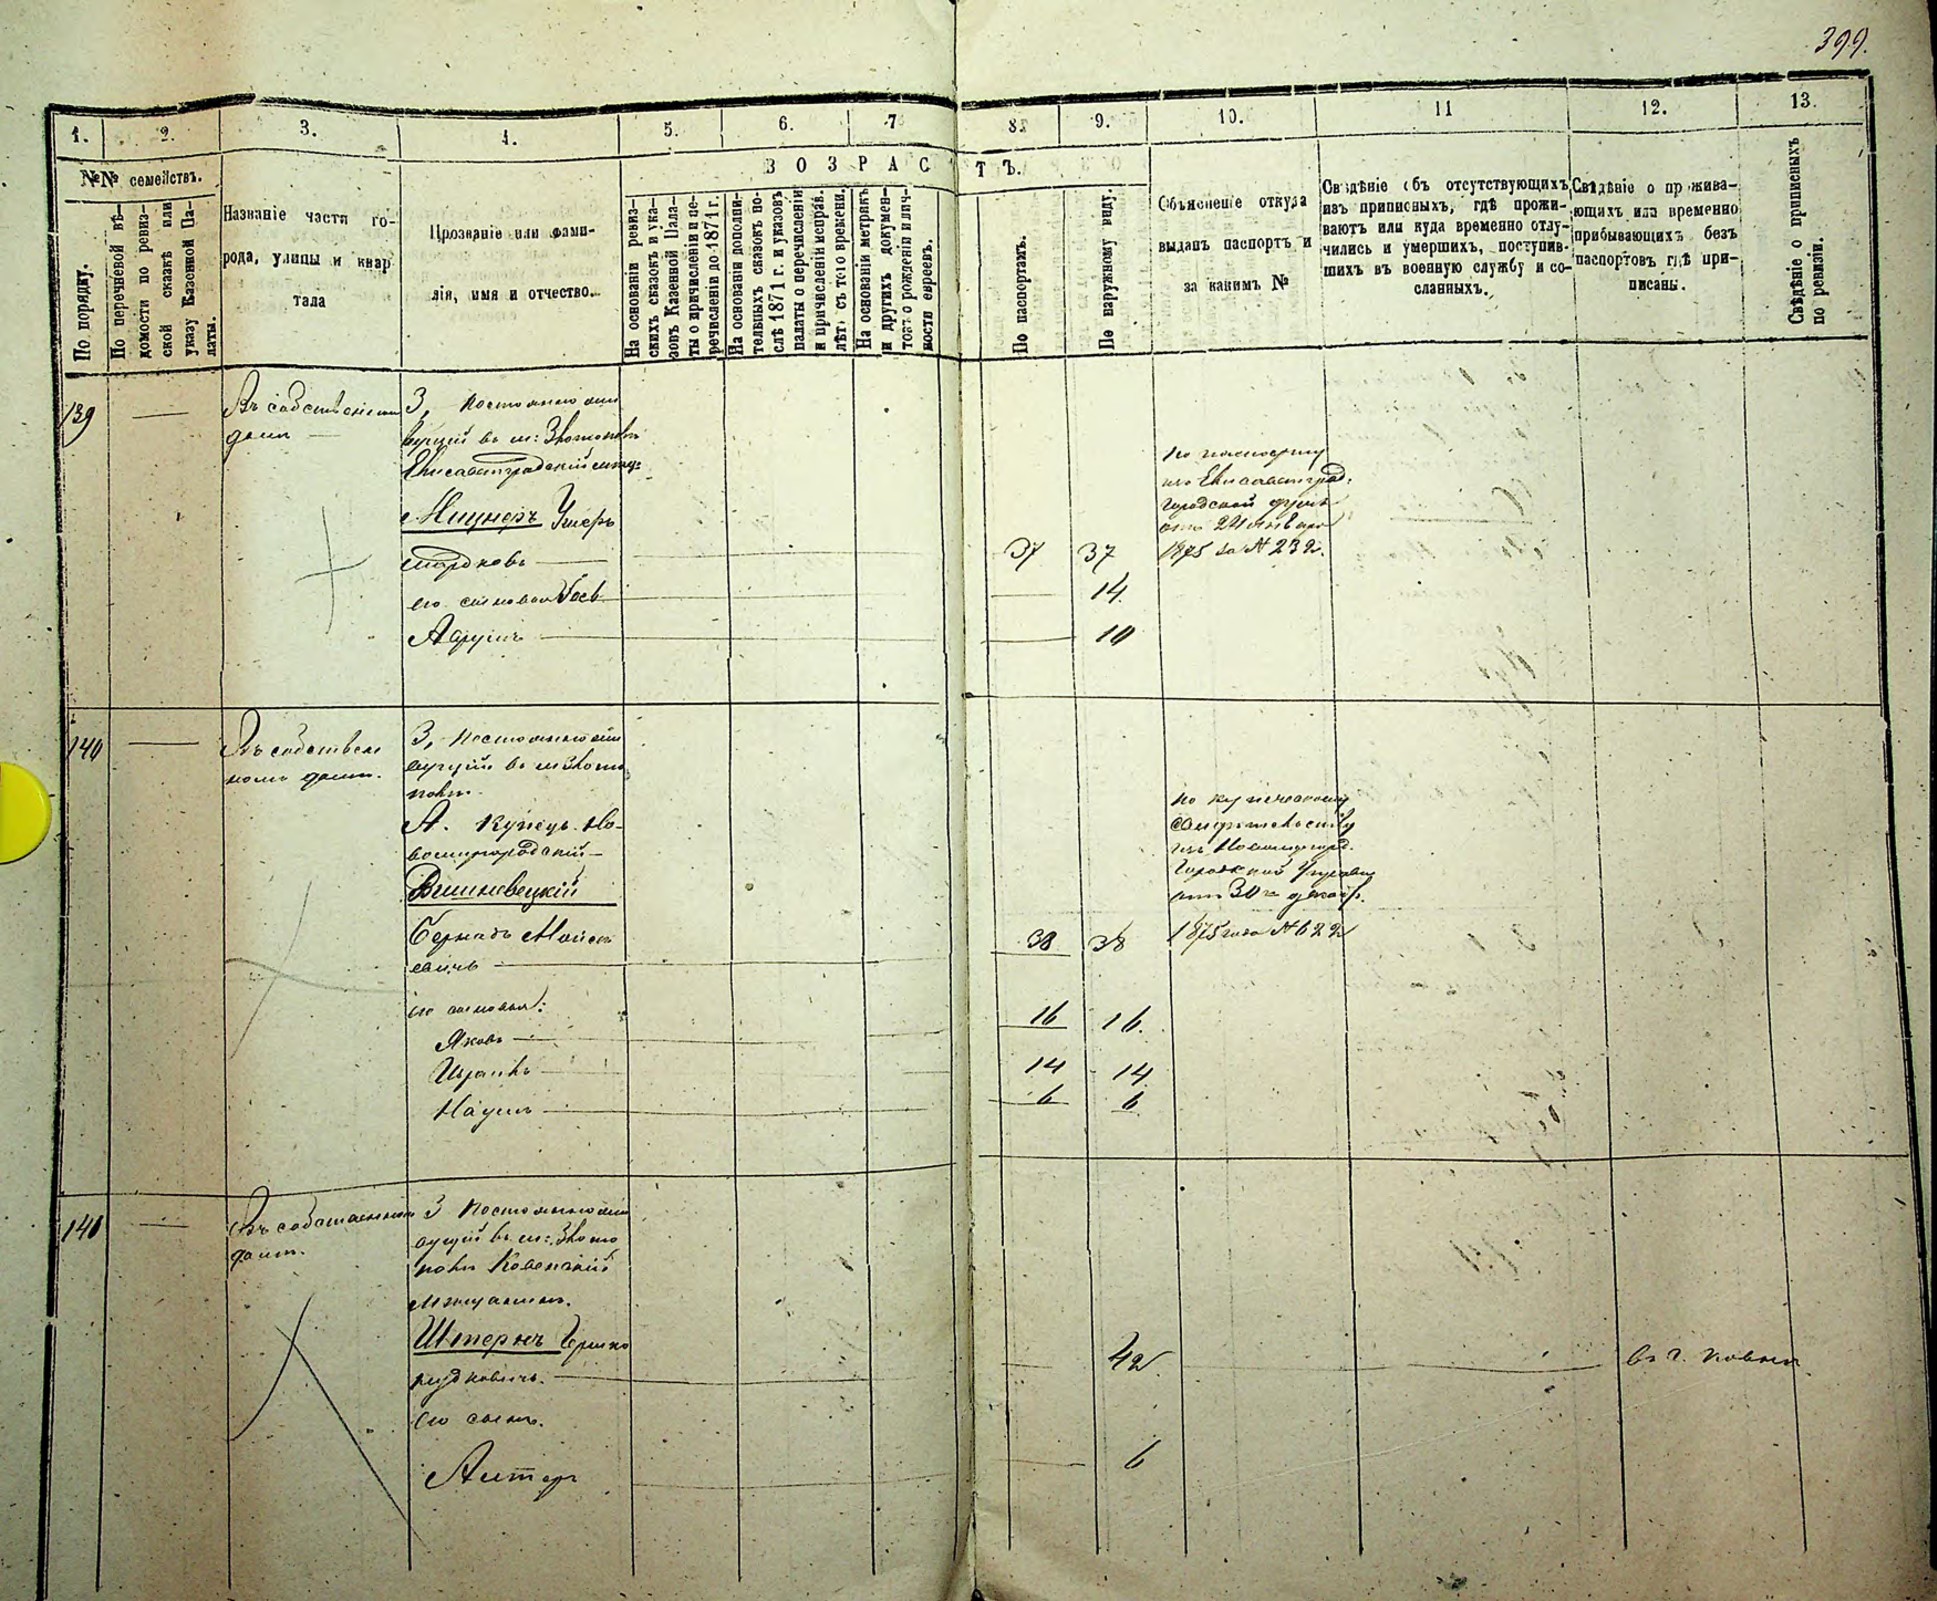 399.
1. 2. 3. 4. 5. 6. 7 8. 9. 10. 11 12. 13.
ВОЗРАСТЪ.
№№ семействъ.
По порядку.
По перечневой вѣ-
домости по ревиз-
ской сказкѣ или
указу Казенной Па-
латы.
Названіе части го-
рода, улицы и квар
тала
Прозваніе или фами-
лія, имя и отчество.
На основаніи ревиз-
скихъ сказокъ и ука-
зовъ Казенной Пала-
ты о причисленіи и пе-
речисленіи до 1871 г.
На основаніи дополни-
тельныхъ сказокъ по-
слѣ 1871 г. и указовъ
палаты о перечисленіи
и причисленіи неправ.
лѣтъ съ того времени.
На основаніи метрикъ
и других докумен-
товъ о рожденіи и лич-
ности евреевъ.
По паспортамъ.
По наружному виду.
Объясненіе откуда
выданъ паспортъ и
за какимъ №
Свѣдѣніе объ отсутствующихъ
изъ приписныхъ, гдѣ прожи-
ваютъ или куда временно отлу-
чились и умершихъ, поступив-
шихъ въ военную службу и со-
сланныхъ.
Свѣдѣніе о прожива-
ющихъ или временно
прибывающихъ безъ
паспортовъ гдѣ при-
писаны.
Свѣдѣніе о приписныхъ
по ревизіи.
139
Въ собственном
домѣ
3, Постоянно жи
вущій въ м: Златополѣ
Елисаветградскій мѣщ:
Мицнеръ Ушеръ
37 37
его сыновья
14.
10
По паспорту
изъ Елисаветград.
Городской думы
отъ 24 января
1875 за № 232.
140
Въ собствен
номъ домѣ.
3, Постоянно жи
вущій въ м Злато
полѣ.
А. Купецъ Но-
вомиргородскій
Вишневецкій
Бернадъ Моисе
евичъ
38 38
его сыновья:
Яковъ 16 16.
Израиль 14 14
Наумъ 6 6
по купеческому
свидѣтельству
изъ Новомиргород.
Городской Управы
отъ 30го декабр.
1875 года № 622
141
Въ собственномъ
домѣ.
3 Постоянно жи
вущій въ м: Злато
полѣ Ковенскій
мѣщанинъ.
Штернъ Гершко
Юдковичъ.
42
его сынъ.
6
въ г. Ковнѣ